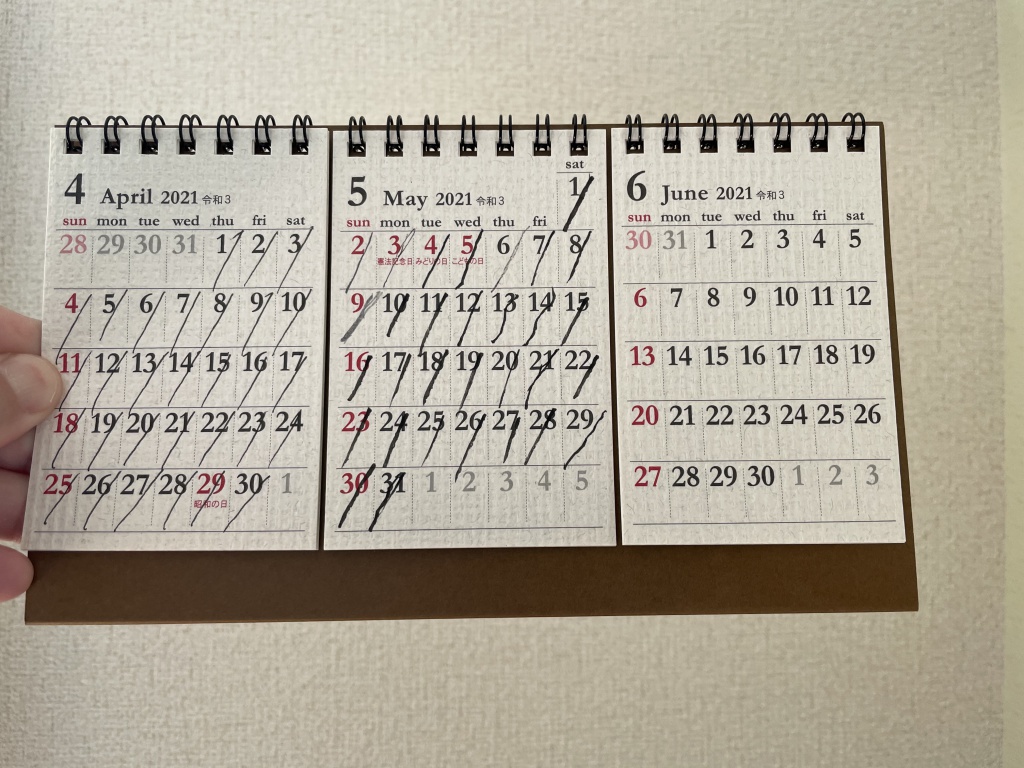 4 April 2021 令和3
sun mon tue wed thu fri sat
28 29 30 31 1 2 3
4 5 6 7 8 9 10
11 12 13 14 15 16 17
18 19 20 21 22 23 24
25 26 27 28 29 30 1
昭和の日
5 May 2021 令和3
sat
1
sun mon tue wed thu fri
2 3 4 5 6 7 8
憲法記念日 みどりの日 こどもの日
9 10 11 12 13 14 15
16 17 18 19 20 21 22
23 24 25 26 27 28 29
30 31 1 2 3 4 5
6 June 2021 令和3
sun mon tue wed thu fri sat
30 31 1 2 3 4 5
6 7 8 9 10 11 12
13 14 15 16 17 18 19
20 21 22 23 24 25 26
27 28 29 30 1 2 3